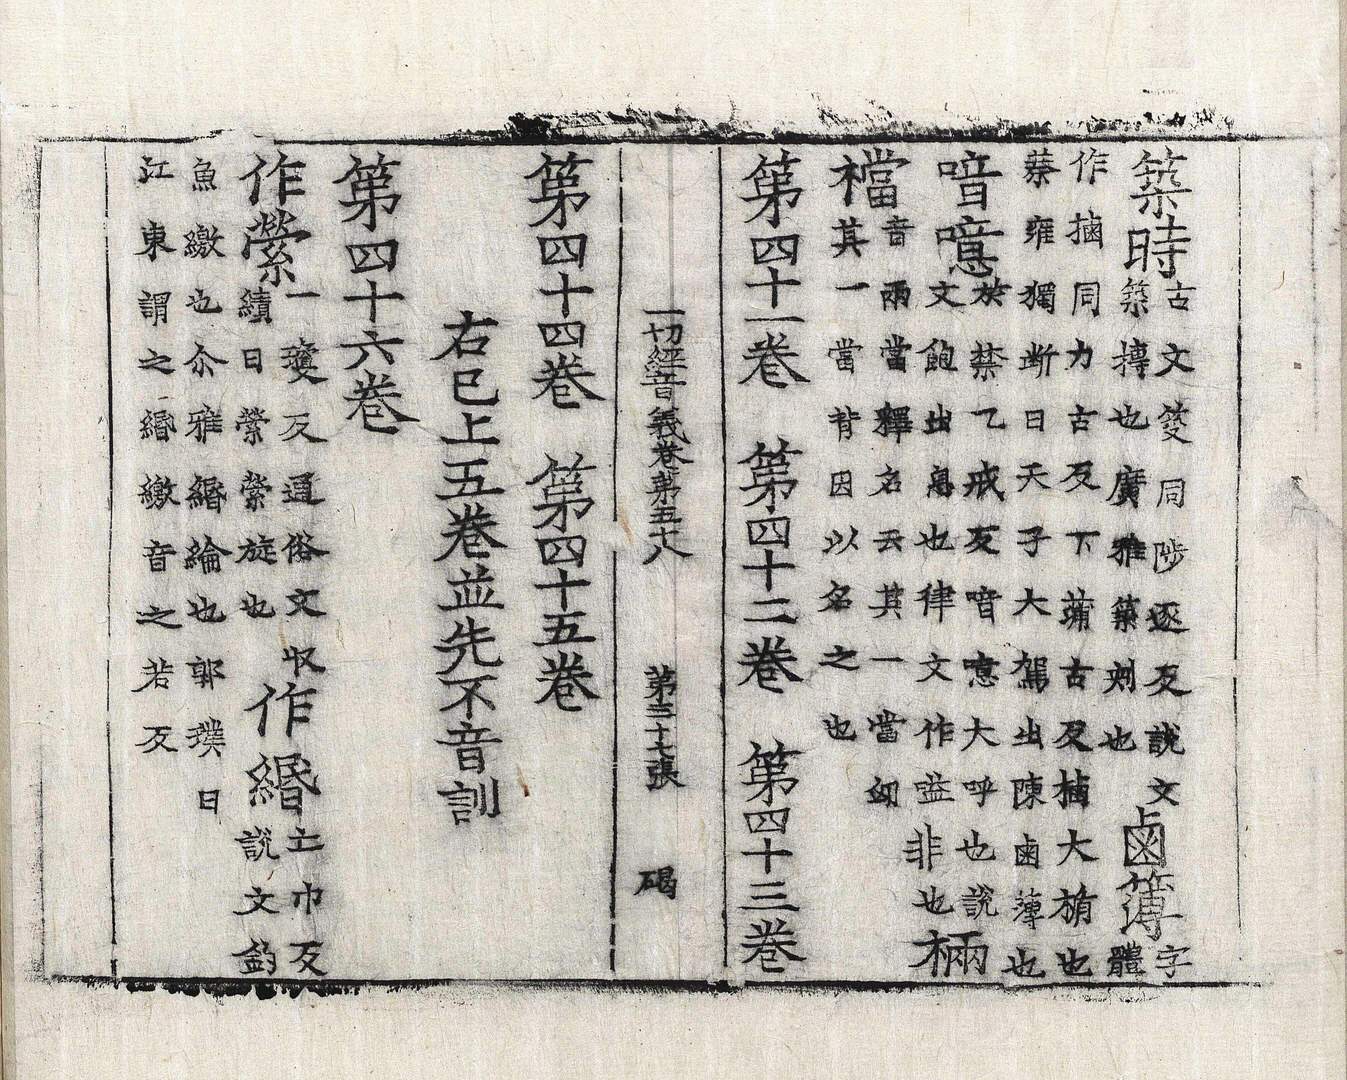 築時古文䇠同陟逐反說文築擣也廣雅築刾也鹵簿字體
作㯭同力古反下蒲古反㯭大楯也
蔡雍獨断曰天子大駕出陳鹵薄也
喑噫於禁乙戒反喑噫大呼也說文飽出息也律文作嗌非也裲
襠音兩當釋名云其一當匈其一當背因以名之也
第四十一卷 第四十二卷 第四十三卷
一切經音義卷第五十八 第三十七張 碣
第四十四卷 第四十五卷
右已上五卷並先不音訓
第四十六卷
作縈一瓊反通俗文収績曰縈縈旋也作緡亡巾反說文釣
魚繳也尒雅緡綸也郭璞曰
江東謂之緡繳音之若反